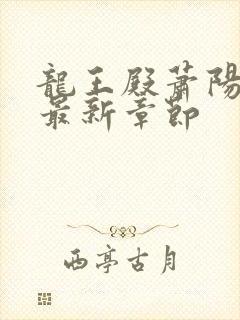 龍王殿蕭陽
最新章節
西亭古月